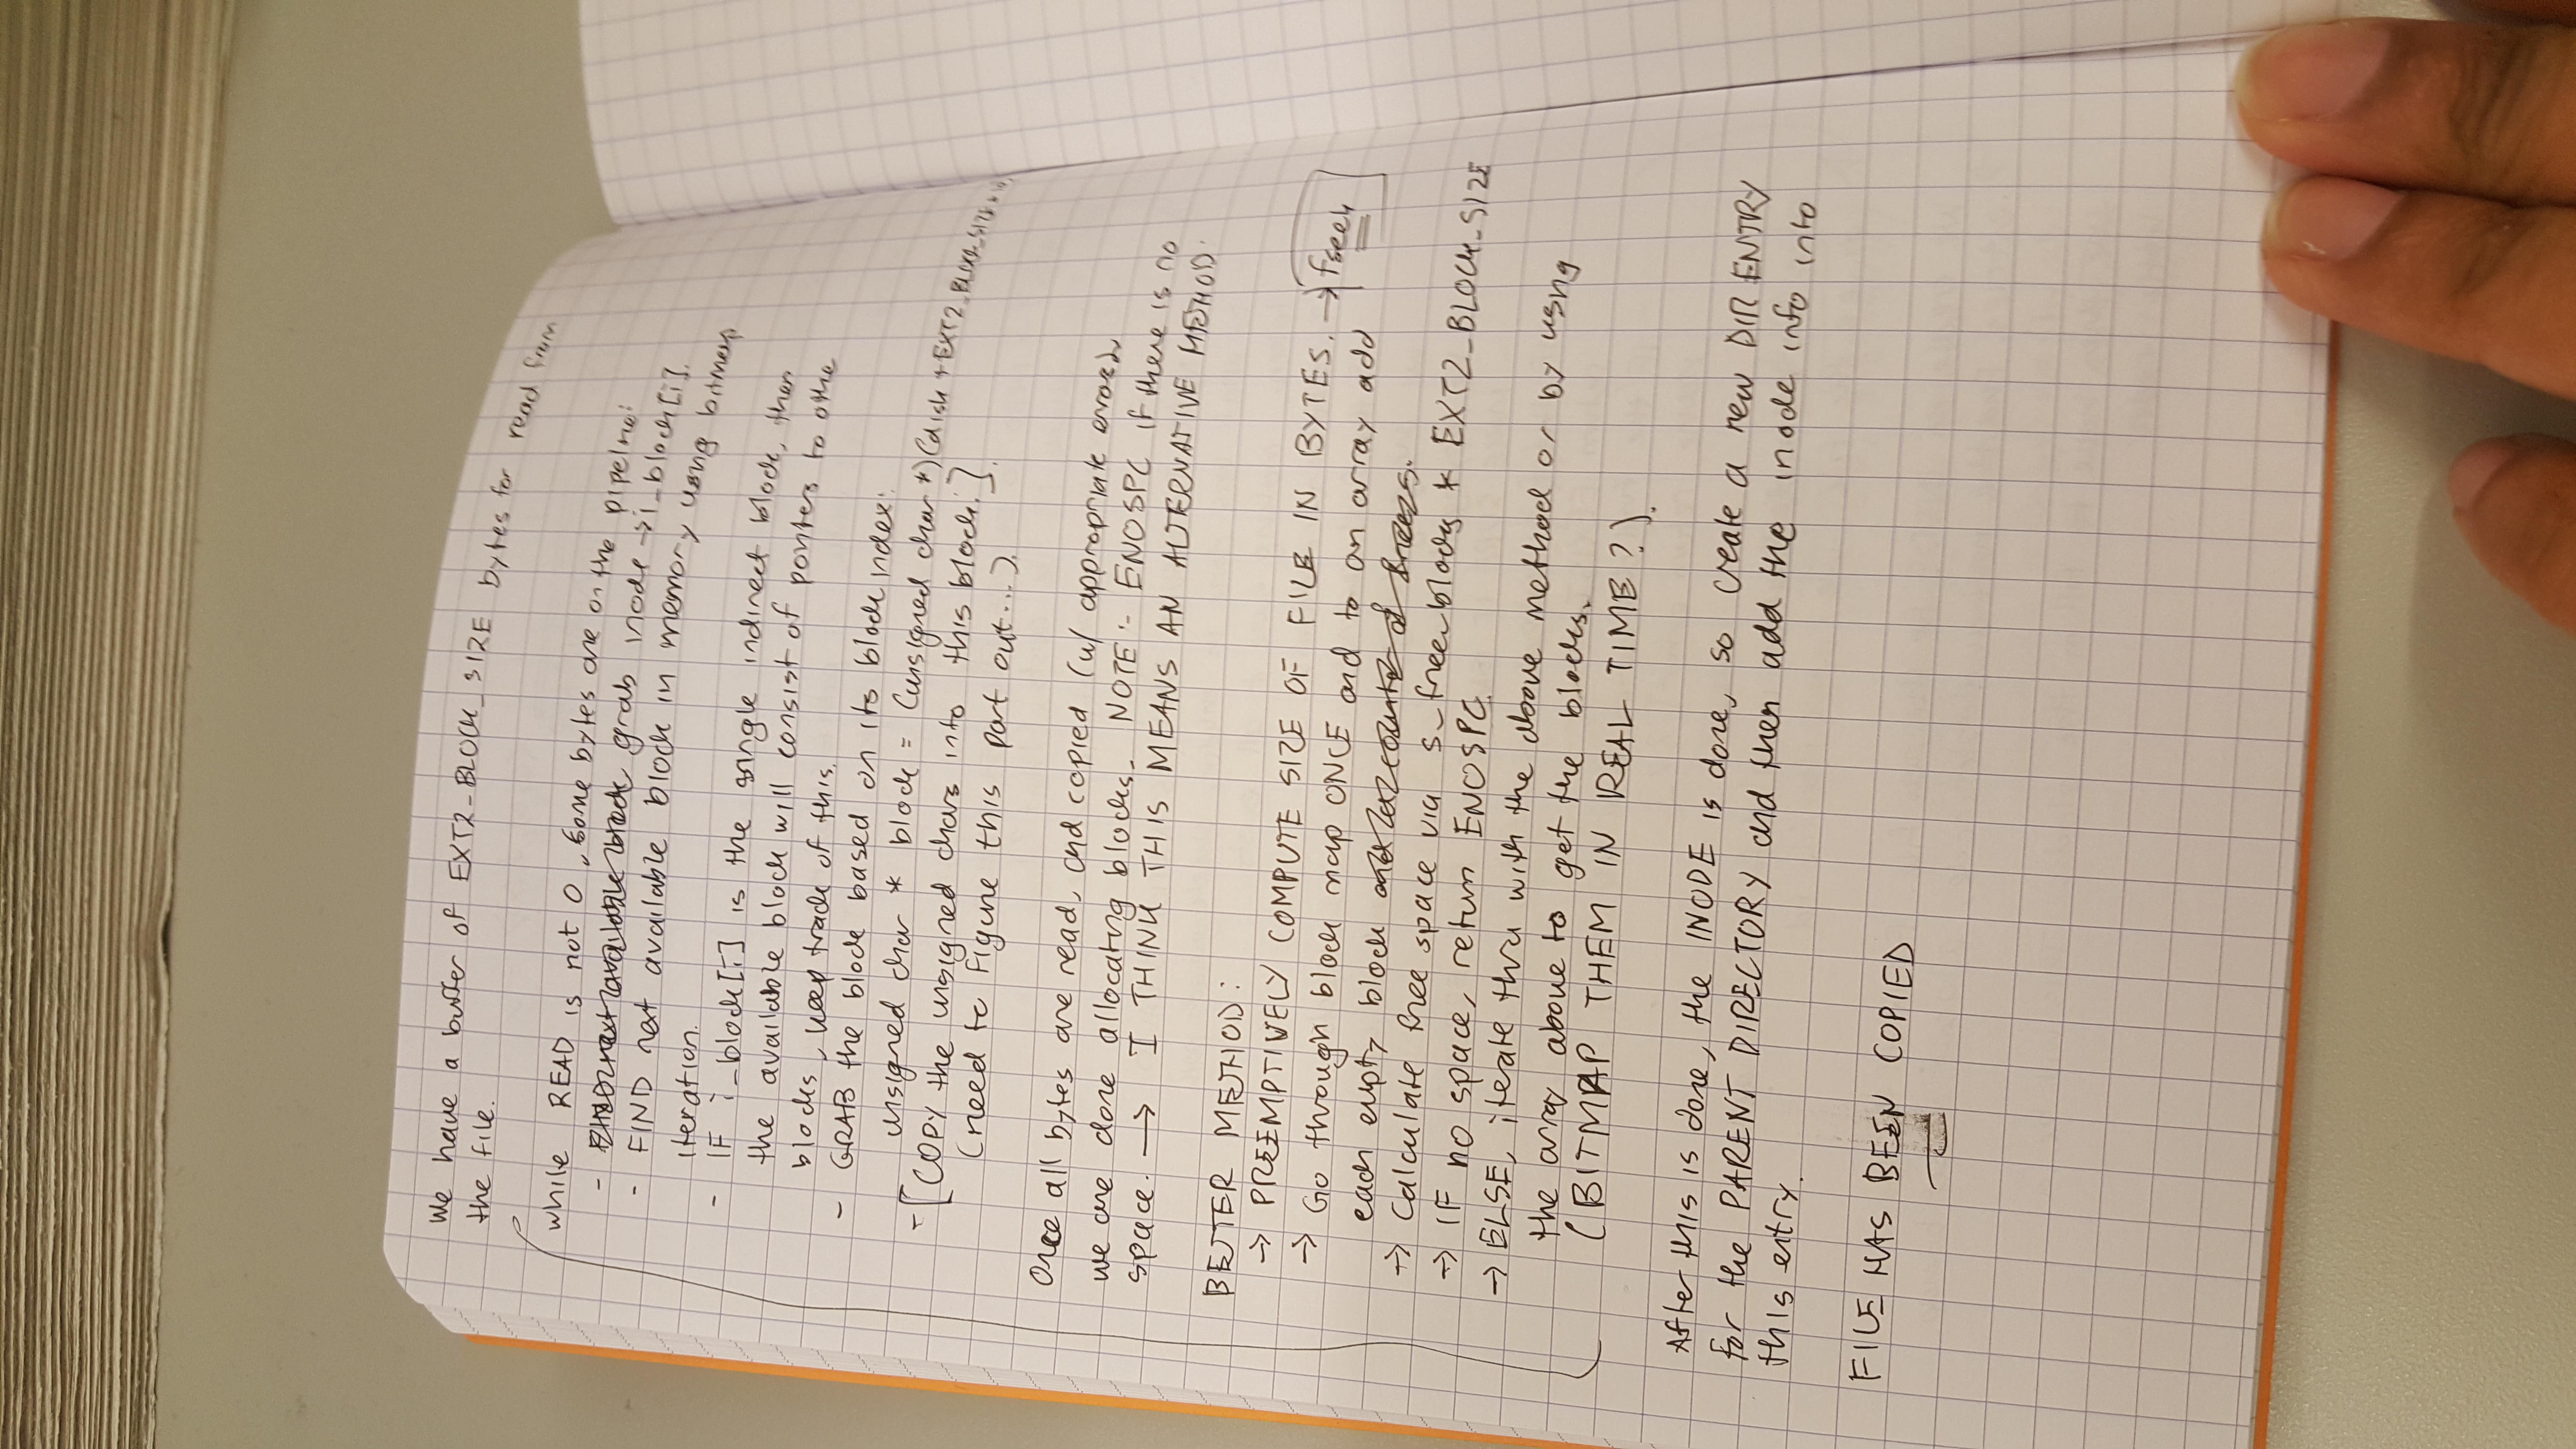 We have a buffer of EXT2_BLOCK_SIZE bytes for read from
the file.
while READ is not 0, some bytes are on the pipeline:
- FIND next available block grab inode->i_block[i].
- FIND next available block in memory using bitmap
iteration.
- IF i_block[i] is the single indirect block, then
the available block will consist of pointers to othe
blocks, keep track of this.
- GRAB the block based on its block index:
unsigned char * block = (unsigned char *)(disk + EXT2_BLOCK_SIZE *
- [COPY the unsigned chars into this block.]
(need to figure this part out...).
Once all bytes are read, and copied (w/ appropriate errors)
we are done allocating blocks. NOTE:- ENOSPC if there is no
space. → I THINK THIS MEANS AN ALTERNATIVE METHOD.
BETTER METHOD:
→ PREEMPTIVELY COMPUTE SIZE OF FILE IN BYTES. → fseek
→ Go through block map ONCE and to an array add
each empty block
→ Calculate free space via s_free_blocks * EXT2_BLOCK_SIZE
→ IF no space, return ENOSPC.
→ ELSE, iterate thru with the above method or by using
the array above to get the blocks.
(BITMAP THEM IN REAL TIME?).
After this is done, the INODE is done, so create a new DIR ENTRY
for the PARENT DIRECTORY and then add the inode info into
this entry.
FILE HAS BEEN COPIED